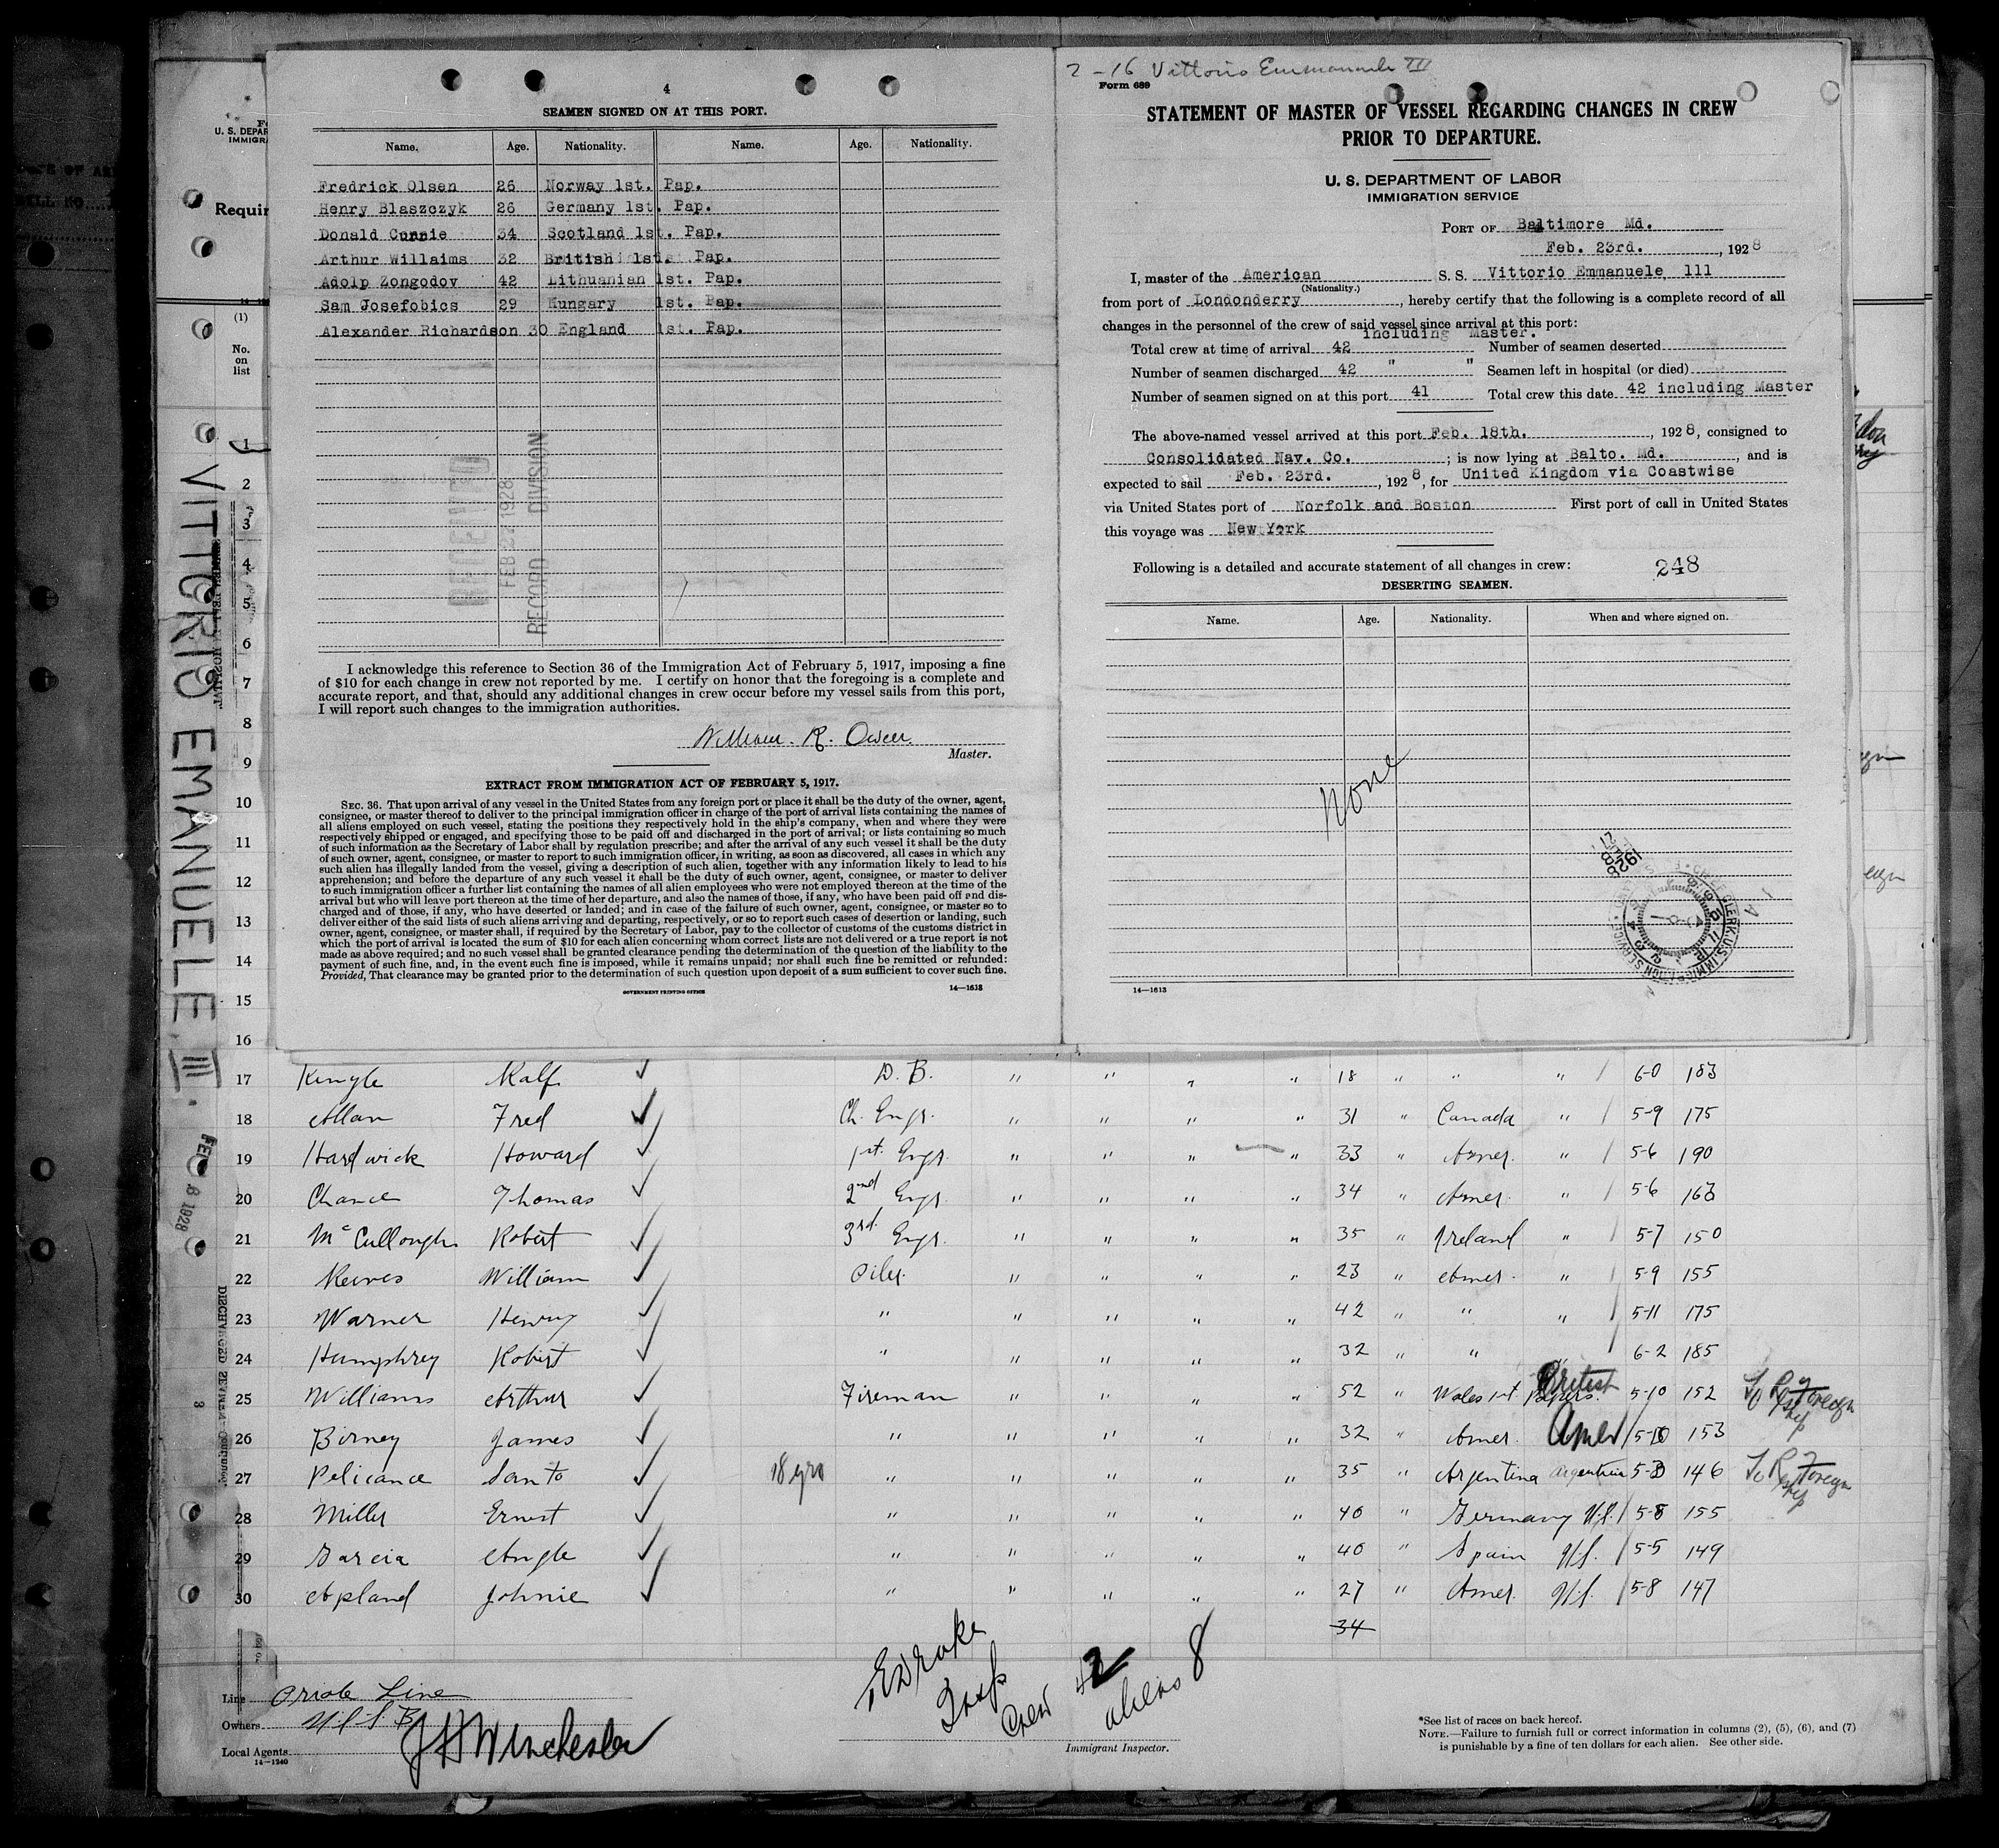 4
SEAMEN SIGNED ON AT THIS PORT.
Name. Age. Nationality. Name. Age. Nationality.
Fredrick Olsen 26 Norway 1st. Pap.
Henry Blaszczyk 26 Germany 1st. Pap.
Donald Currie 34 Scotland 1st. Pap.
Arthur Willaims 32 British 1st. Pap.
Adolp Zongodov 42 Lithuanian 1st. Pap.
Sam Josefobics 29 Hungary 1st. Pap.
Alexander Richardson 30 England 1st. Pap.
RECEIVED
FEB 22 1928
RECORD DIVISION
I acknowledge this reference to Section 36 of the Immigration Act of February 5, 1917, imposing a fine
of $10 for each change in crew not reported by me. I certify on honor that the foregoing is a complete and
accurate report, and that, should any additional changes in crew occur before my vessel sails from this port,
I will report such changes to the immigration authorities.
William. R. Owen.
Master.
EXTRACT FROM IMMIGRATION ACT OF FEBRUARY 5, 1917.
SEC. 36. That upon arrival of any vessel in the United States from any foreign port or place it shall be the duty of the owner, agent,
consignee, or master thereof to deliver to the principal immigration officer in charge of the port of arrival lists containing the names of
all aliens employed on such vessel, stating the positions they respectively hold in the ship's company, when and where they were
respectively shipped or engaged, and specifying those to be paid off and discharged in the port of arrival; or lists containing so much
of such information as the Secretary of Labor shall by regulation prescribe; and after the arrival of any such vessel it shall be the duty
of such owner, agent, consignee, or master to report to such immigration officer, in writing, as soon as discovered, all cases in which any
such alien has illegally landed from the vessel, giving a description of such alien, together with any information likely to lead to his
apprehension; and before the departure of any such vessel it shall be the duty of such owner, agent, consignee, or master to deliver
to such immigration officer a further list containing the names of all alien employees who were not employed thereon at the time of the
arrival but who will leave port thereon at the time of her departure, and also the names of those, if any, who have been paid off and dis-
charged and of those, if any, who have deserted or landed; and in case of the failure of such owner, agent, consignee, or master so to
deliver either of the said lists of such aliens arriving and departing, respectively, or so to report such cases of desertion or landing, such
owner, agent, consignee, or master shall, if required by the Secretary of Labor, pay to the collector of customs of the customs district in
which the port of arrival is located the sum of $10 for each alien concerning whom correct lists are not delivered or a true report is not
made as above required; and no such vessel shall be granted clearance pending the determination of the question of the liability to the
payment of such fine, and, in the event such fine is imposed, while it remains unpaid; nor shall such fine be remitted or refunded:
Provided, That clearance may be granted prior to the determination of such question upon deposit of a sum sufficient to cover such fine.
GOVERNMENT PRINTING OFFICE 14—1613
2-16 Vittorio Emmanuele III
Form 689
STATEMENT OF MASTER OF VESSEL REGARDING CHANGES IN CREW
PRIOR TO DEPARTURE.
U. S. DEPARTMENT OF LABOR
IMMIGRATION SERVICE
PORT OF Baltimore Md.
Feb. 23rd. , 1928
I, master of the American S. S. Vittorio Emmanuele 111
(Nationality.)
from port of Londonderry , hereby certify that the following is a complete record of all
changes in the personnel of the crew of said vessel since arrival at this port:
including Master.
Total crew at time of arrival 42 Number of seamen deserted
Number of seamen discharged 42 " " Seamen left in hospital (or died)
Number of seamen signed on at this port 41 Total crew this date 42 including Master
The above-named vessel arrived at this port Feb. 18th. , 1928, consigned to
Consolidated Nav. Co. ; is now lying at Balto. Md. , and is
expected to sail Feb. 23rd. , 1928, for United Kingdom via Coastwise
via United States port of Norfolk and Boston First port of call in United States
this voyage was New York
Following is a detailed and accurate statement of all changes in crew: 248
DESERTING SEAMEN.
Name. Age. Nationality. When and where signed on.
None
1928
14—1613
U. S. DEPAR
IMMIGRA
Requir
(1)
No.
on
list
1
2
3
4
5
6
7
8
9
10
11
12
13
14
15
16
VITTORIO EMANUELE III.
1928
DISCHARGED SEAMEN
3
17 Kengle Ralf D. B. " " " " 18 " " " 6-0 183
18 Allan Fred Ch. Engr. " " " " 31 " Canada " 5-9 175
19 Hardwick Howard 1st. Engr. " " " " 33 " Amer. " 5-6 190
20 Chance Thomas 2nd Engr. " " " " 34 " Amer. " 5-6 163
21 McCullough Robert 3rd. Engr. " " " " 35 " Ireland " 5-7 150
22 Reeves William Oiler. " " " " 23 " Amer. " 5-9 155
23 Warner Henry " " " " " 42 " " " 5-11 175
24 Humphrey Robert " " " " " 32 " " " 6-2 185
25 Williams Arthur Fireman " " " " 52 " Wales 1st Papers. British 5-10 152 To Reship Foreign
26 Birney James " " " " " 32 " Amer. Amer 5-10 153
27 Pelicance Santo 18 yrs " " " " " 35 " Argentina Argentina 146 To Reship Foreign
28 Miller Ernest " " " " " 40 " Germany U.S. 5-8 155
29 Garcia Angle " " " " " 40 " Spain U.S. 5-5 149
30 Apland Johnie " " " " " 27 " Amer. U.S. 5-8 147
34
Line Oriole Line
Owners U.S.S.B.
Local Agents J H Winchester
14—1240
Insp
Crew 42
aliens 8
Immigrant Inspector.
*See list of races on back hereof.
NOTE.—Failure to furnish full or correct information in columns (2), (5), (6), and (7)
is punishable by a fine of ten dollars for each alien. See other side.